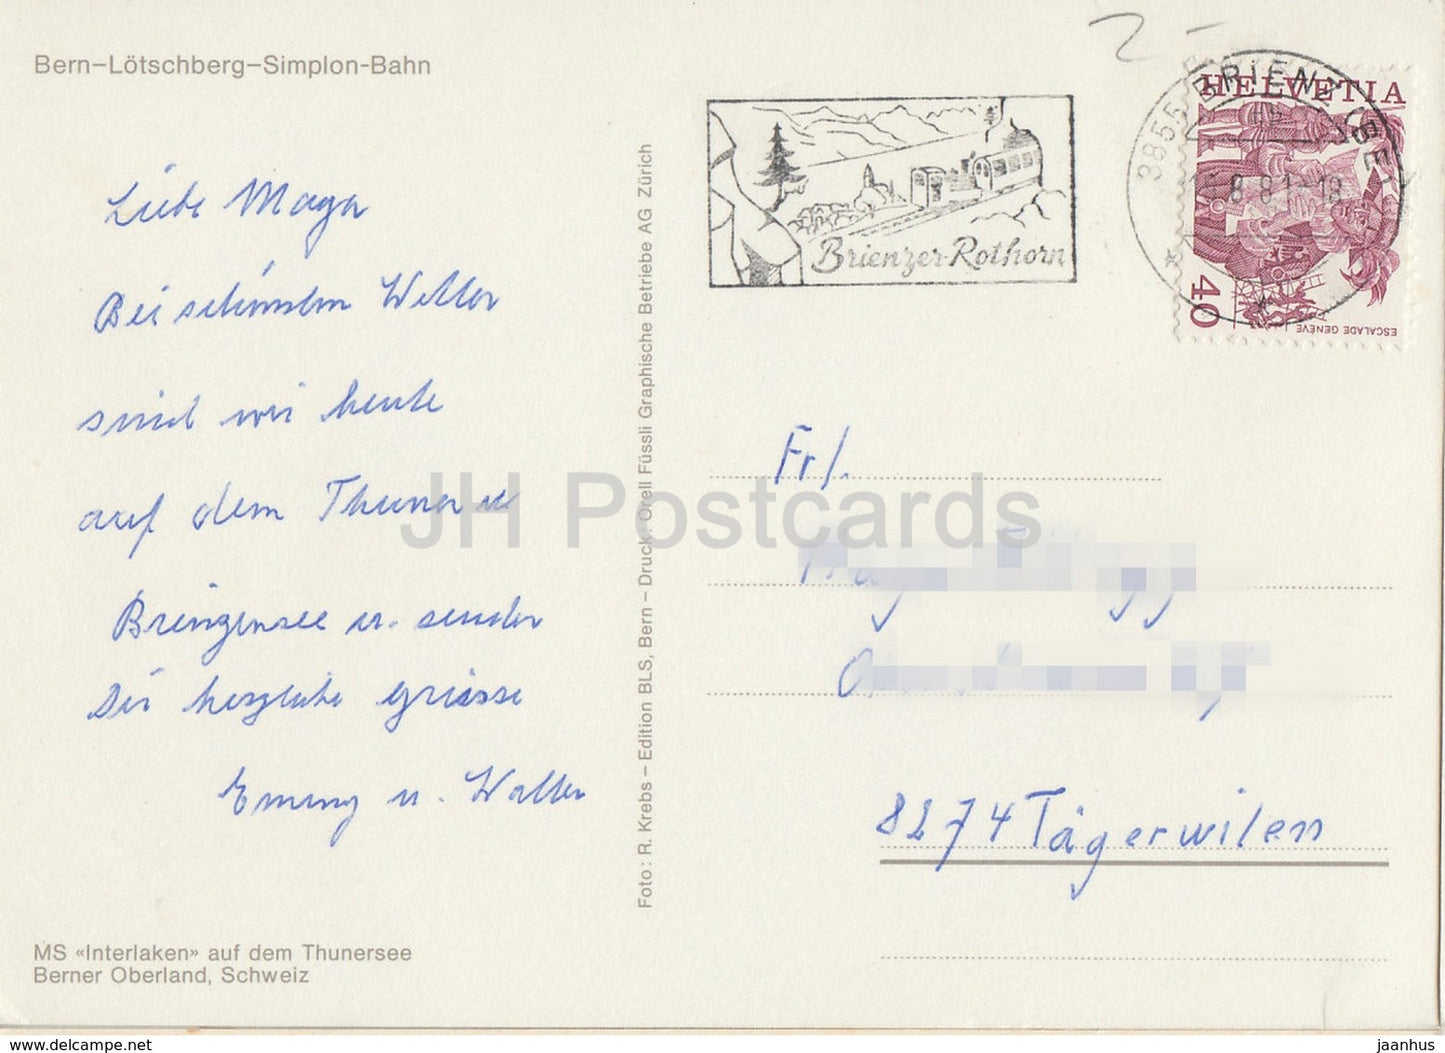 Bern–Lötschberg–Simplon-Bahn
Liebe Maya
Bei schönstem Wetter
sind wir heute
auf dem Thuner u
Brienzersee u. senden
Dir herzliche Grüsse
Emmy u. Walter
MS «Interlaken» auf dem Thunersee
Berner Oberland, Schweiz
Foto: R. Krebs – Edition BLS, Bern – Druck: Orell Füssli Graphische Betriebe AG Zürich
Brienzer-Rothorn
3855 BRIENZ (BE)
8.81-18
HELVETIA
40
ESCALADE GENÈVE
2-
Frl.
8274 Tägerwilen
JH Postcards
www.delcampe.net
jaanhus